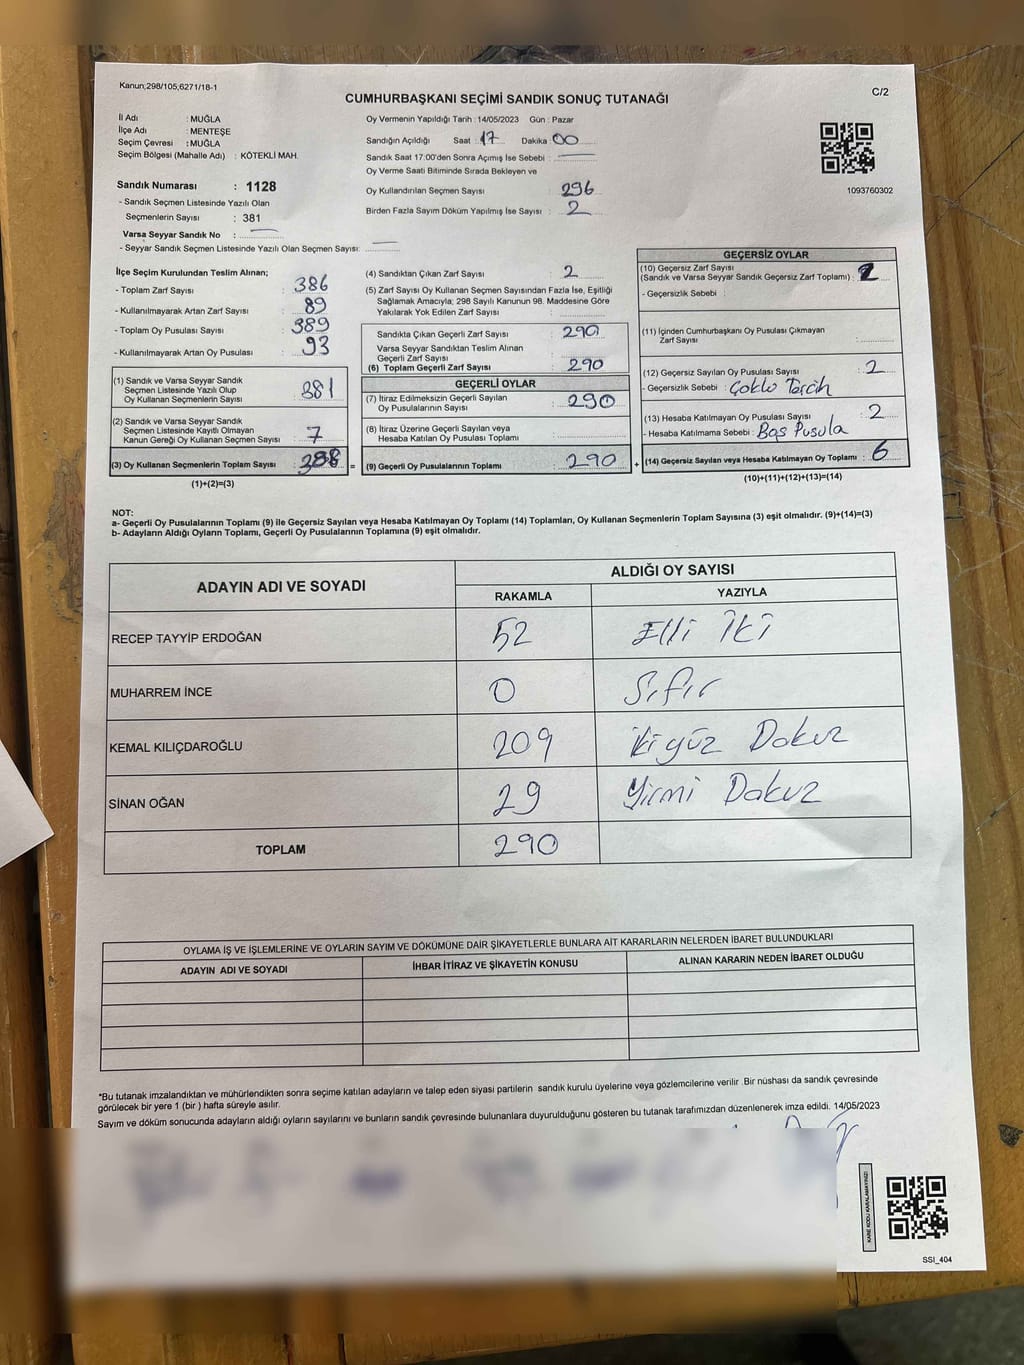 Kanun;298/105;6271/18-1
C/2
CUMHURBAŞKANI SEÇİMİ SANDIK SONUÇ TUTANAĞI
İl Adı : MUĞLA
İlçe Adı : MENTEŞE
Seçim Çevresi : MUĞLA
Seçim Bölgesi (Mahalle Adı) : KÖTEKLİ MAH.
Sandık Numarası : 1128
- Sandık Seçmen Listesinde Yazılı Olan
Seçmenlerin Sayısı : 381
Varsa Seyyar Sandık No :
- Seyyar Sandık Seçmen Listesinde Yazılı Olan Seçmen Sayısı:
Oy Vermenin Yapıldığı Tarih : 14/05/2023 Gün : Pazar
Sandığın Açıldığı Saat : 17 Dakika : 00
Sandık Saat 17:00'den Sonra Açımış İse Sebebi :
Oy Verme Saati Bitiminde Sırada Bekleyen ve
Oy Kullandırılan Seçmen Sayısı : 296
Birden Fazla Sayım Döküm Yapılmış İse Sayısı : 2
1093760302
İlçe Seçim Kurulundan Teslim Alınan;
- Toplam Zarf Sayısı : 386
- Kullanılmayarak Artan Zarf Sayısı : 89
- Toplam Oy Pusulası Sayısı : 389
- Kullanılmayarak Artan Oy Pusulası : 93
(1) Sandık ve Varsa Seyyar Sandık
Seçmen Listesinde Yazılı Olup
Oy Kullanan Seçmenlerin Sayısı : 381
(2) Sandık ve Varsa Seyyar Sandık
Seçmen Listesinde Kayıtlı Olmayan
Kanun Gereği Oy Kullanan Seçmen Sayısı : 7
(3) Oy Kullanan Seçmenlerin Toplam Sayısı : 388 =
(1)+(2)=(3)
(4) Sandıktan Çıkan Zarf Sayısı : 2
(5) Zarf Sayısı Oy Kullanan Seçmen Sayısından Fazla İse, Eşitliği
Sağlamak Amacıyla; 298 Sayılı Kanunun 98. Maddesine Göre
Yakılarak Yok Edilen Zarf Sayısı :
Sandıkta Çıkan Geçerli Zarf Sayısı : 290
Varsa Seyyar Sandıktan Teslim Alınan
Geçerli Zarf Sayısı :
(6) Toplam Geçerli Zarf Sayısı : 290
GEÇERLİ OYLAR
(7) İtiraz Edilmeksizin Geçerli Sayılan
Oy Pusulalarının Sayısı : 290
(8) İtiraz Üzerine Geçerli Sayılan veya
Hesaba Katılan Oy Pusulası Toplamı :
(9) Geçerli Oy Pusulalarının Toplamı : 290 +
GEÇERSİZ OYLAR
(10) Geçersiz Zarf Sayısı
(Sandık ve Varsa Seyyar Sandık Geçersiz Zarf Toplamı) : 2
- Geçersizlik Sebebi :
(11) İçinden Cumhurbaşkanı Oy Pusulası Çıkmayan
Zarf Sayısı :
(12) Geçersiz Sayılan Oy Pusulası Sayısı : 2
- Geçersizlik Sebebi : Çoklu Tercih
(13) Hesaba Katılmayan Oy Pusulası Sayısı : 2
- Hesaba Katılmama Sebebi : Boş Pusula
(14) Geçersiz Sayılan veya Hesaba Katılmayan Oy Toplamı : 6
(10)+(11)+(12)+(13)=(14)
NOT:
a- Geçerli Oy Pusulalarının Toplamı (9) ile Geçersiz Sayılan veya Hesaba Katılmayan Oy Toplamı (14) Toplamları, Oy Kullanan Seçmenlerin Toplam Sayısına (3) eşit olmalıdır. (9)+(14)=(3)
b- Adayların Aldığı Oyların Toplamı, Geçerli Oy Pusulalarının Toplamına (9) eşit olmalıdır.
ADAYIN ADI VE SOYADI ALDIĞI OY SAYISI
RAKAMLA YAZIYLA
RECEP TAYYİP ERDOĞAN 52 Elli İki
MUHARREM İNCE 0 Sıfır
KEMAL KILIÇDAROĞLU 209 İkiyüz Dokuz
SİNAN OĞAN 29 Yirmi Dokuz
TOPLAM 290
OYLAMA İŞ VE İŞLEMLERİNE VE OYLARIN SAYIM VE DÖKÜMÜNE DAİR ŞİKAYETLERLE BUNLARA AİT KARARLARIN NELERDEN İBARET BULUNDUKLARI
ADAYIN ADI VE SOYADI İHBAR İTİRAZ VE ŞİKAYETİN KONUSU ALINAN KARARIN NEDEN İBARET OLDUĞU
*Bu tutanak imzalandıktan ve mühürlendikten sonra seçime katılan adayların ve talep eden siyasi partilerin sandık kurulu üyelerine veya gözlemcilerine verilir .Bir nüshası da sandık çevresinde
görülecek bir yere 1 (bir ) hafta süreyle asılır.
Sayım ve döküm sonucunda adayların aldığı oyların sayılarını ve bunların sandık çevresinde bulunanlara duyurulduğunu gösteren bu tutanak tarafımızdan düzenlenerek imza edildi. 14/05/2023
KARE KODU KARALAMAYINIZ!
SSI_404